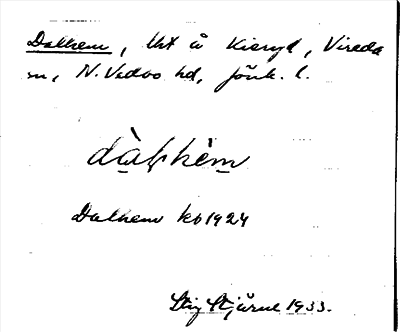 Dalhem, tht å Kieryd, Vireda
sn, N. Vedbo hd, Jönk. l.
dàlhèm
Dalhem kb 1924
Stig Stjärne 1933.